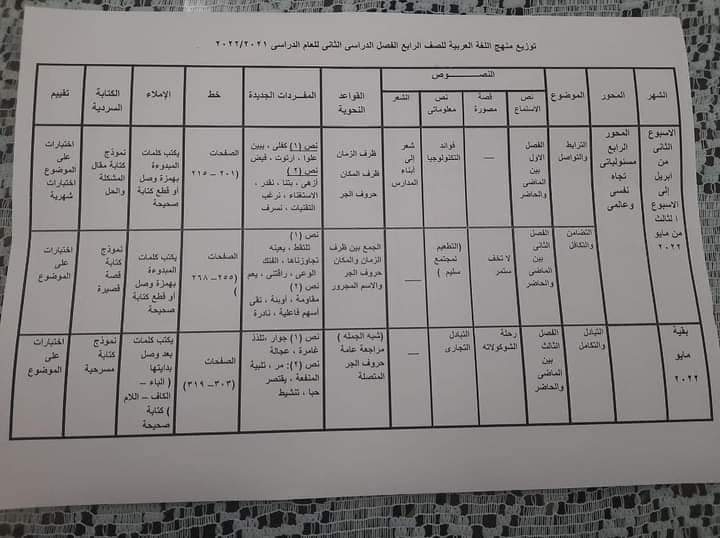 توزيع منهج اللغة العربية للصف الرابع الفصل الدراسى الثانى للعام الدراسى ٢٠٢٢/٢٠٢١
الشهر
المحور
الموضوع
النصوص
نص الاستماع
قصة مصورة
نص معلوماتى
الشعر
القواعد النحوية
المفردات الجديدة
خط
الإملاء
الكتابة السردية
تقييم
الاسبوع
الثانى
من
ابريل
إلى
الاسبوع
الثالث
من مايو
٢٠٢٢
المحور
الرابع
مسئولياتى
تجاه
نفسى
وعالمى
الترابط
والتواصل
الفصل
الاول
بين
الماضى
والحاضر
—
فوائد
التكنولوجيا
شعر
إلى
أبناء
المدارس
ظرف الزمان
ظرف المكان
حروف الجر
نص (١) كفلى ، يبين
علوا ، ارتوت ، فيض
نص ( ٢ )
أزهى ، بتنا ، نقدر ،
الاستغناء ، نرغب
التقنيات ، نسرف
الصفحات
(٢٠١– ٢١٥
يكتب كلمات
المبدوءة
بهمزة وصل
أو قطع كتابة
صحيحة
نموذج
كتابة مقال
المشكلة
والحل
اختبارات
على
الموضوع
اختبارات
شهرية
التضامن
والتكافل
الفصل
الثانى
بين
الماضى
والحاضر
لا تخف
ستمر
(التطعيم
لمجتمع
سليم )
—
الجمع بين ظرف
الزمان والمكان
حروف الجر
والاسم المجرور
نص (١)
تلتقط ، يعينه
تجاوزناها ، الفتك
الوعى ، رافقتى ، يعم
نص (٢)
مقاومة ، أوبئة ، تقى
أسهم فاعلية ، نادرة
الصفحات
(٢٥٥– ٢٦٨
)
يكتب كلمات
المبدوءة
بهمزة وصل
أو قطع كتابة
صحيحة
نموذج
كتابة
قصة
قصيرة
اختبارات
على
الموضوع
بقية
مايو
٢٠٢٢
التبادل
والتكامل
الفصل
الثالث
بين
الماضى
والحاضر
رحلة
الشوكولاته
التبادل
التجارى
—
(شبه الجمله )
مراجعة عامة
حروف الجر
المتصلة
نص (١) جوار ،تلذذ
غامرة ، عجالة
نص (٢): مر ، تلبية
المنفعة ، يقتصر
حبا ، تنشيط
الصفحات
(٣٠٣– ٣١٩)
يكتب كلمات
بعد وصل
بدايتها
( الباء –
الكاف – اللام
) كتابة
صحيحة
نموذج
كتابة
مسرحية
اختبارات
على
الموضوع